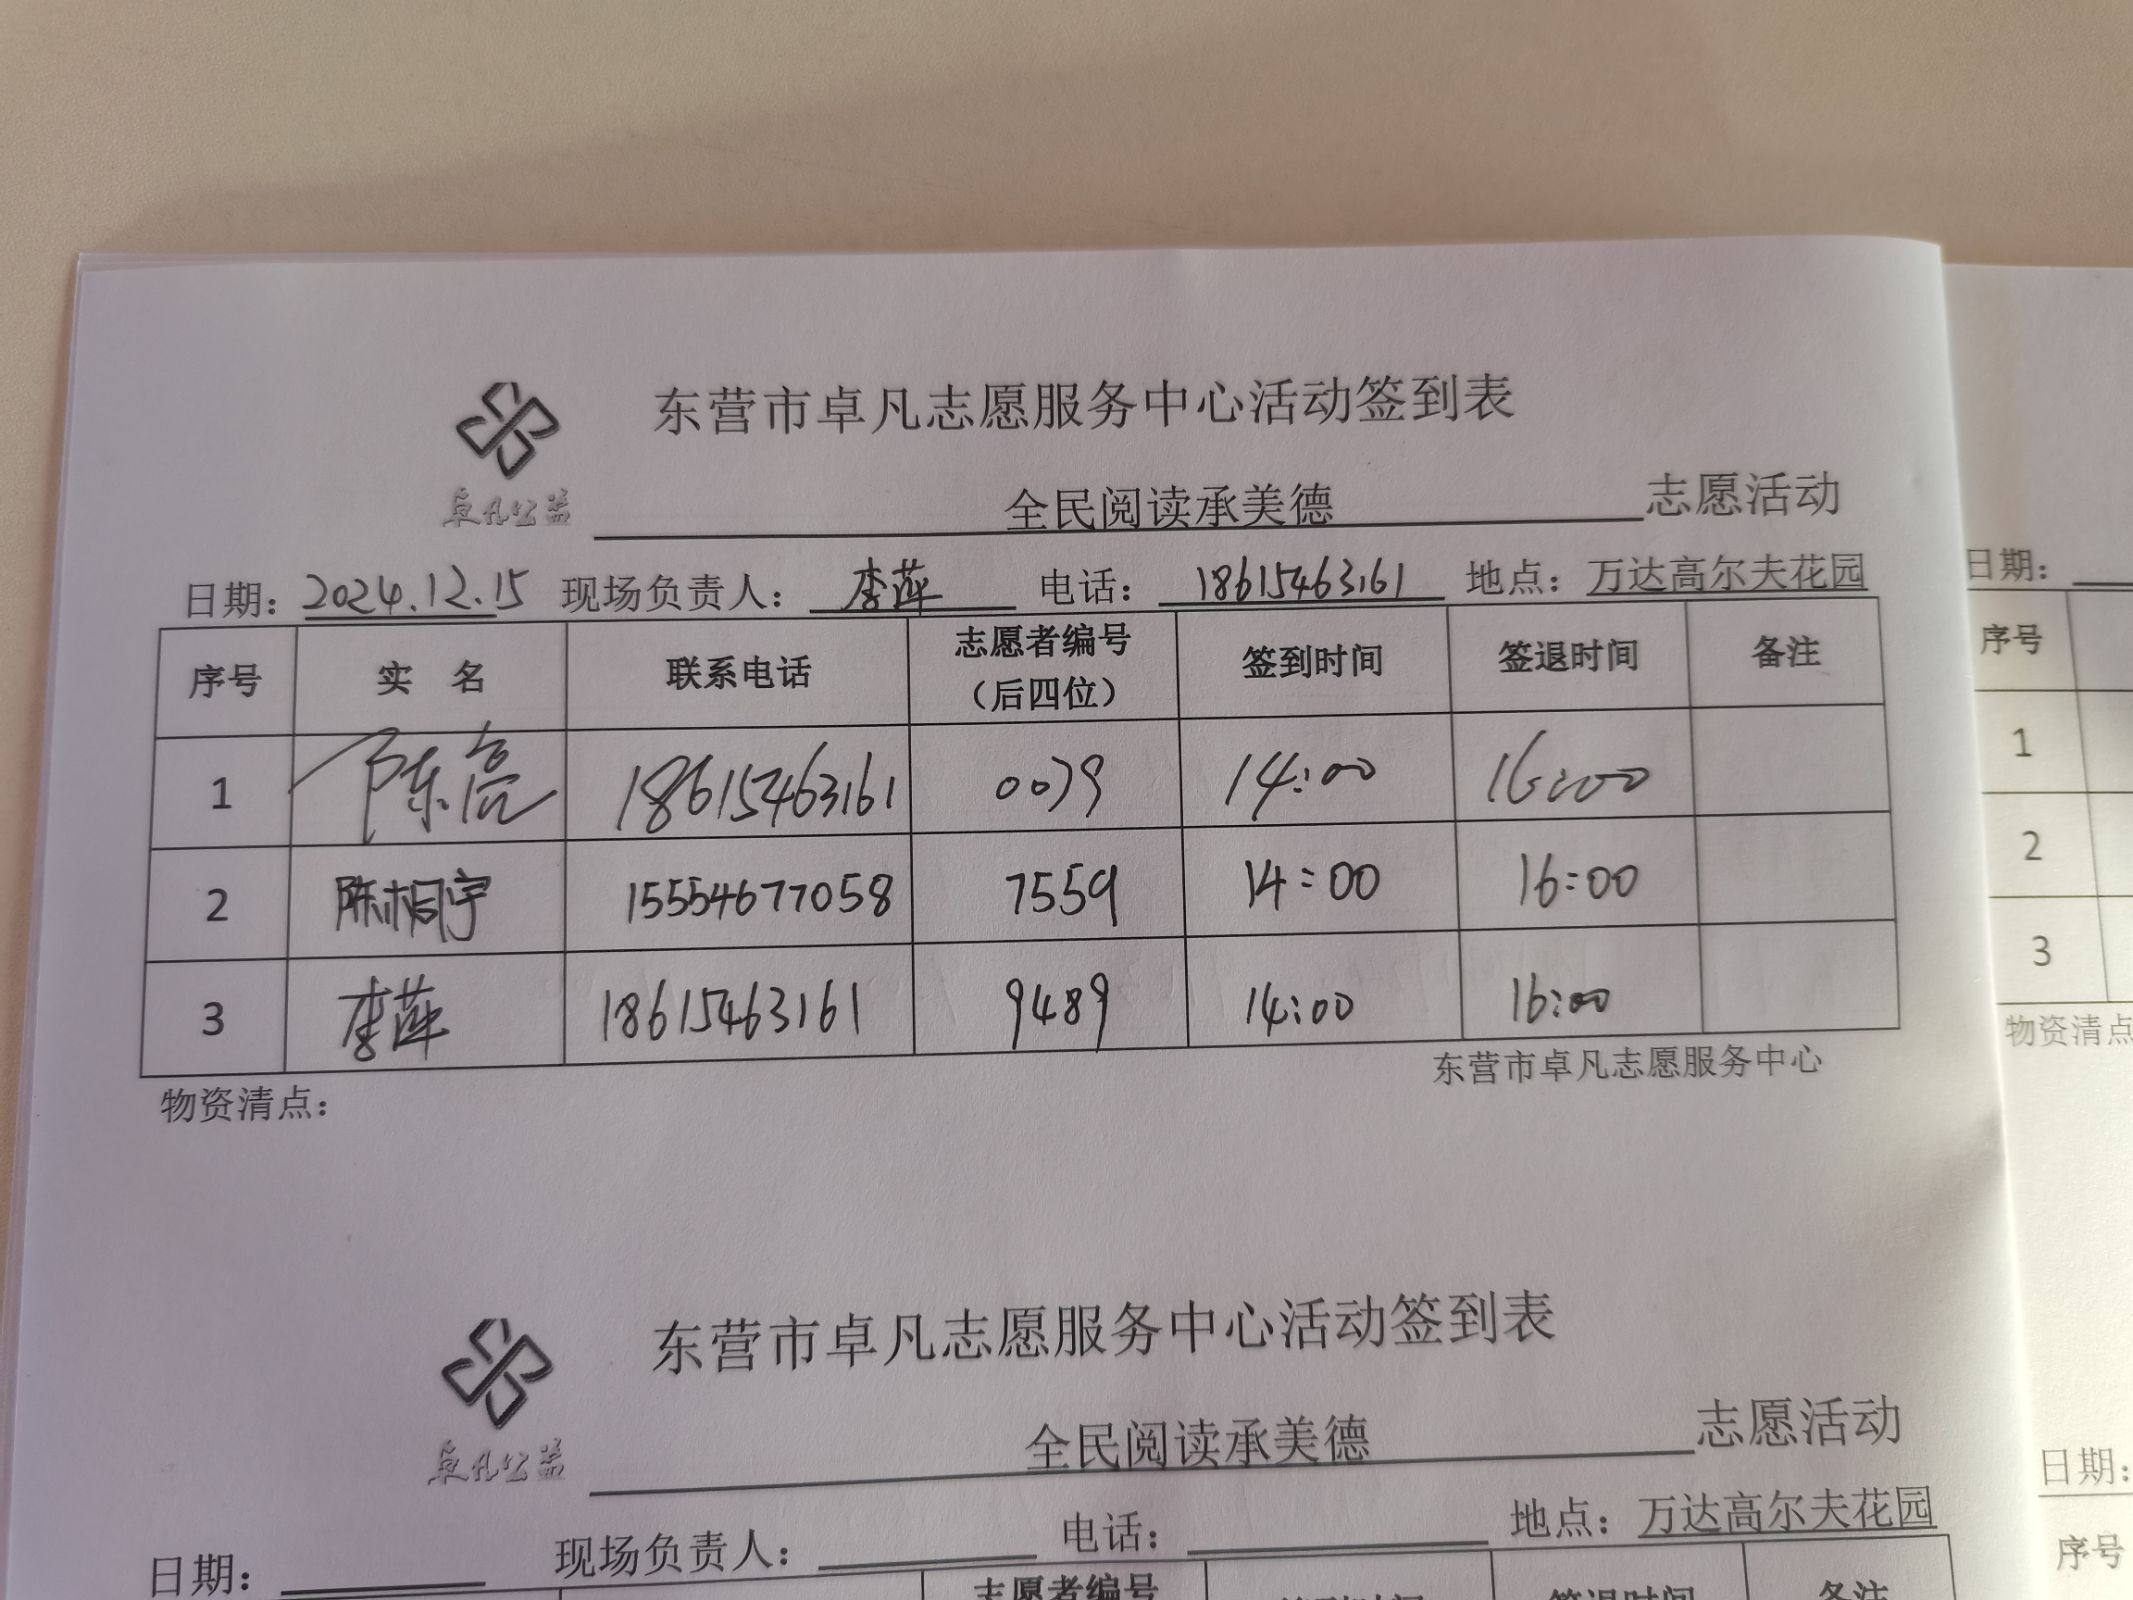 东营市卓凡志愿服务中心活动签到表
卓凡公益
全民阅读承美德 志愿活动
日期：2024.12.15 现场负责人：李萍 电话：18615463161 地点：万达高尔夫花园
序号 实 名 联系电话 志愿者编号（后四位） 签到时间 签退时间 备注
1 陈亮 18615463161 0079 14:00 16:00
2 陈桐宇 15554677058 7559 14:00 16:00
3 李萍 18615463161 9489 14:00 16:00
东营市卓凡志愿服务中心
物资清点：
东营市卓凡志愿服务中心活动签到表
卓凡公益
全民阅读承美德 志愿活动
日期： 现场负责人： 电话： 地点：万达高尔夫花园
志愿者编号 签到时间 签退时间 备注
日期：
序号
1
2
3
物资清点
日期：
序号